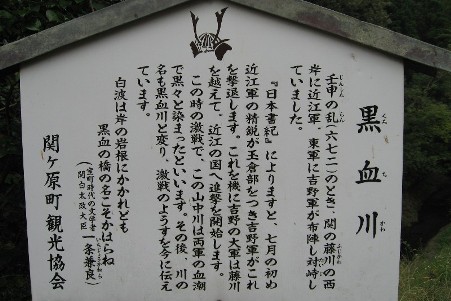 黒血川
くろちかわ
壬申の乱(六七二)のとき、関の藤川の西
じんしん らん ふじかわ
岸に近江軍、東軍に吉野軍が布陣し対峙し
たいじ
ていました。
『日本書紀』によりますと、七月の初め
近江軍の精鋭が玉倉部をつき吉野軍がこれ
を撃退します。これを機に吉野の大軍は藤川
を越えて、近江の国へ進撃を開始します。
この時の激戦で、この山中川は両軍の血潮
で黒々と染まったといいます。その後、川の
名も黒血川と変り、激戦のようすを今に伝え
ています。
白波は岸の岩根にかかれども
黒血の橋の名こそかはらね
(室町時代の文学者
関白太政大臣 一条兼良)
関ヶ原町観光協会